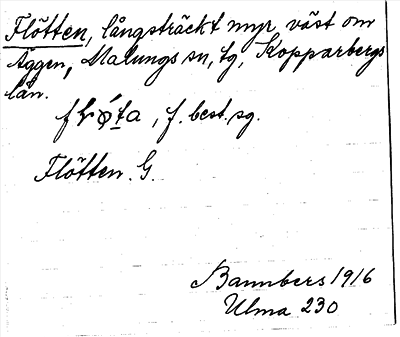 Flötten, långsträckt myr, väst om
Äggen, Malungs sn, tg, Kopparbergs
län.
f. best. sg.
Flötten. G.
Bannbers 1916
Ulma 230